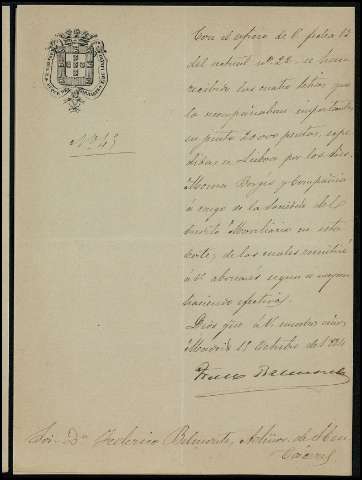 Nº 43
Con el oficio de V. fecha 13
del actual nº 22 se han
recibido las cuatro letras que
la acompañaban importantes
en junto 20.000 pesetas, expe-
didas en Lisboa por los Sres.
Moura Borges y Compañia
á cargo de la Sociedad del
Credito Moviliario en esta
Corte, de las cuales remitiré
á V. abonarés segun se vayan
haciendo efectivas.
Dios gue. á V. muchos años.
Madrid 15 Octubre de 1884
Franco Belmonte
Sor. Dn. Federico Belmonte, Aduana de
Cáceres